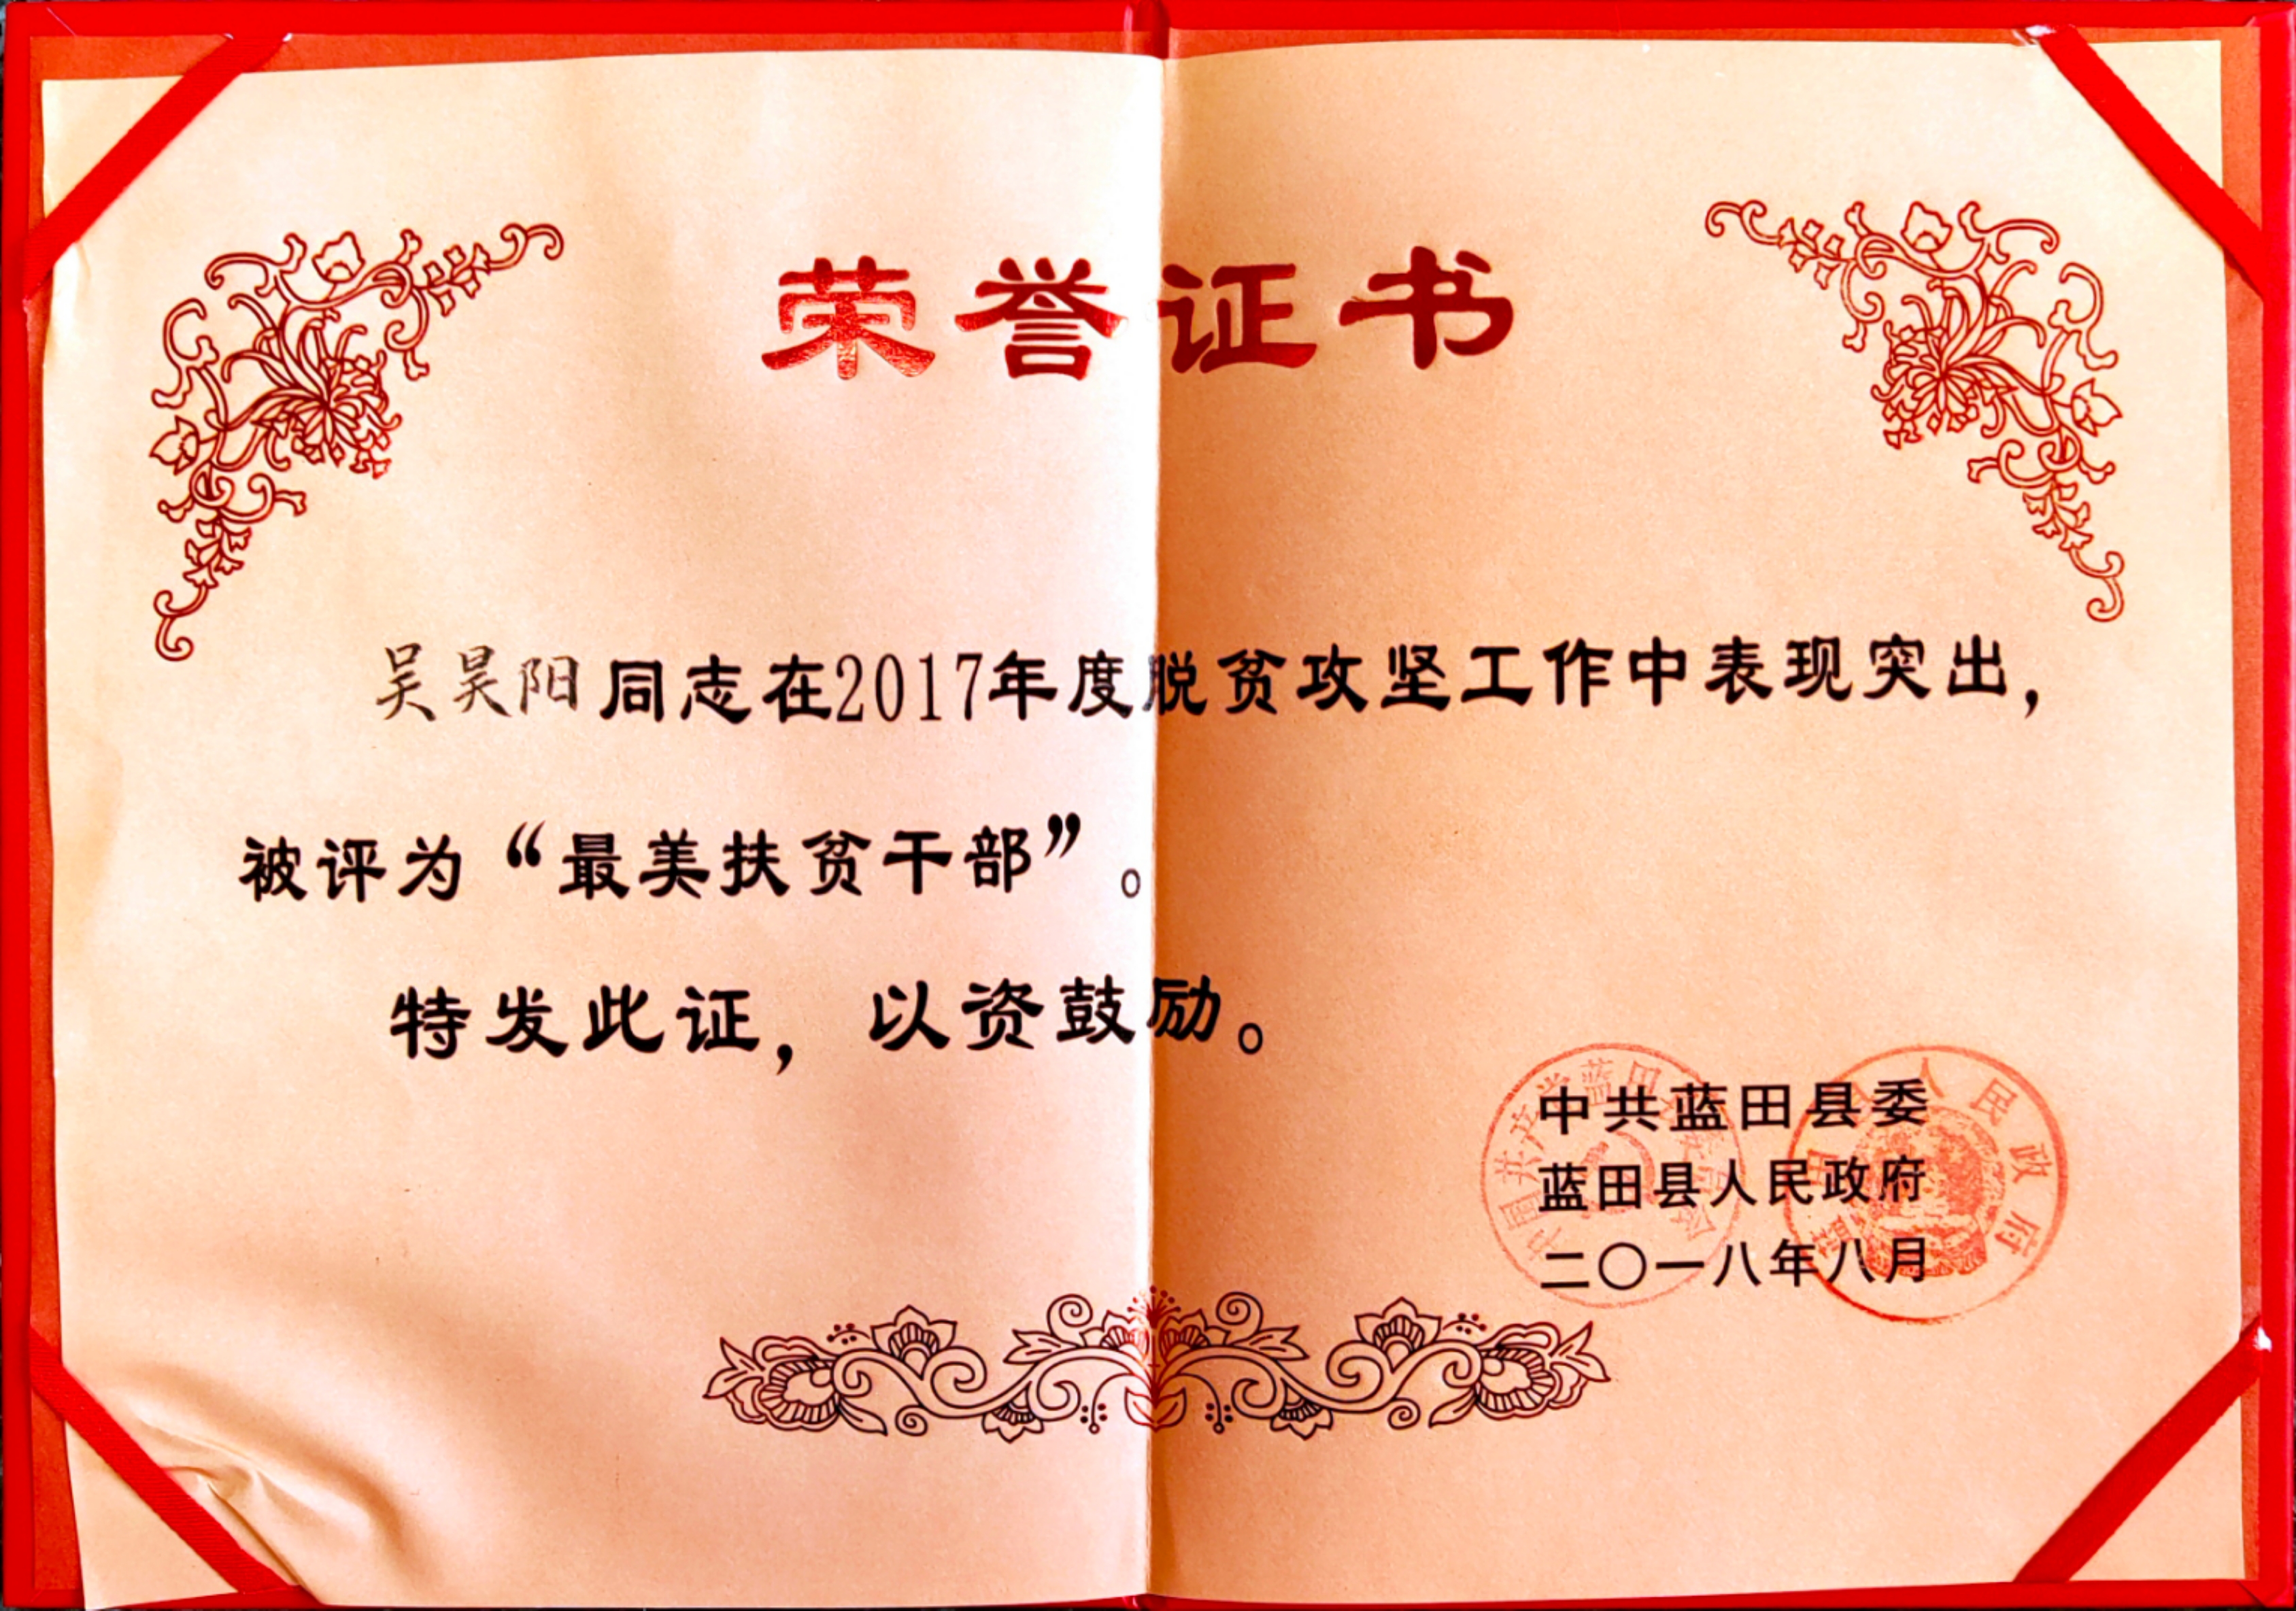 荣誉证书
吴昊阳同志在2017年度脱贫攻坚工作中表现突出，
被评为“最美扶贫干部”。
特发此证，以资鼓励。
中共蓝田县委
蓝田县人民政府
二〇一八年八月